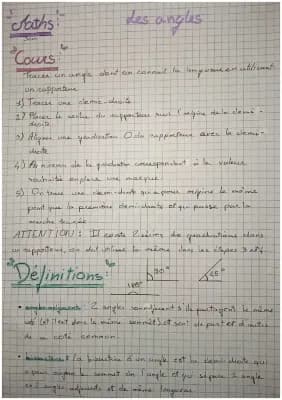 Maths :
Les angles
Cours
Tracer un angle dont on connait la longueur en utilisant
un rapporteur
1) Tracer une demi-droite
2) Placer le centre du rapporteur sur l'origine de la demi-
droite
3) Aligner une graduation 0 du rapporteur avec la demi-
droite
4) Au niveau de la graduation correspondant à la valeur
souhaitée une marque
5) On trace une demi-droite qui a pour origine le même
point que la première demi-droite et qui passe par la
marche tracée
ATTENTION : Il existe 2 séries de graduations dans
un rapporteur, on doit utiliser la même dans les étapes 3 et 4
Définitions :
90°
45°
180°
• angles adjacents : 2 angles sont adjacents s'ils partagent le même
côté (et l'ont dans le même sommet) et sont de part et d'autre
de ce côté commun.
• bissectrice : la bissectrice d'un angle est la demi-droite qui
a pour origine le sommet de l'angle et qui sépare l'angle
en 2 angles adjacents et de même longueur